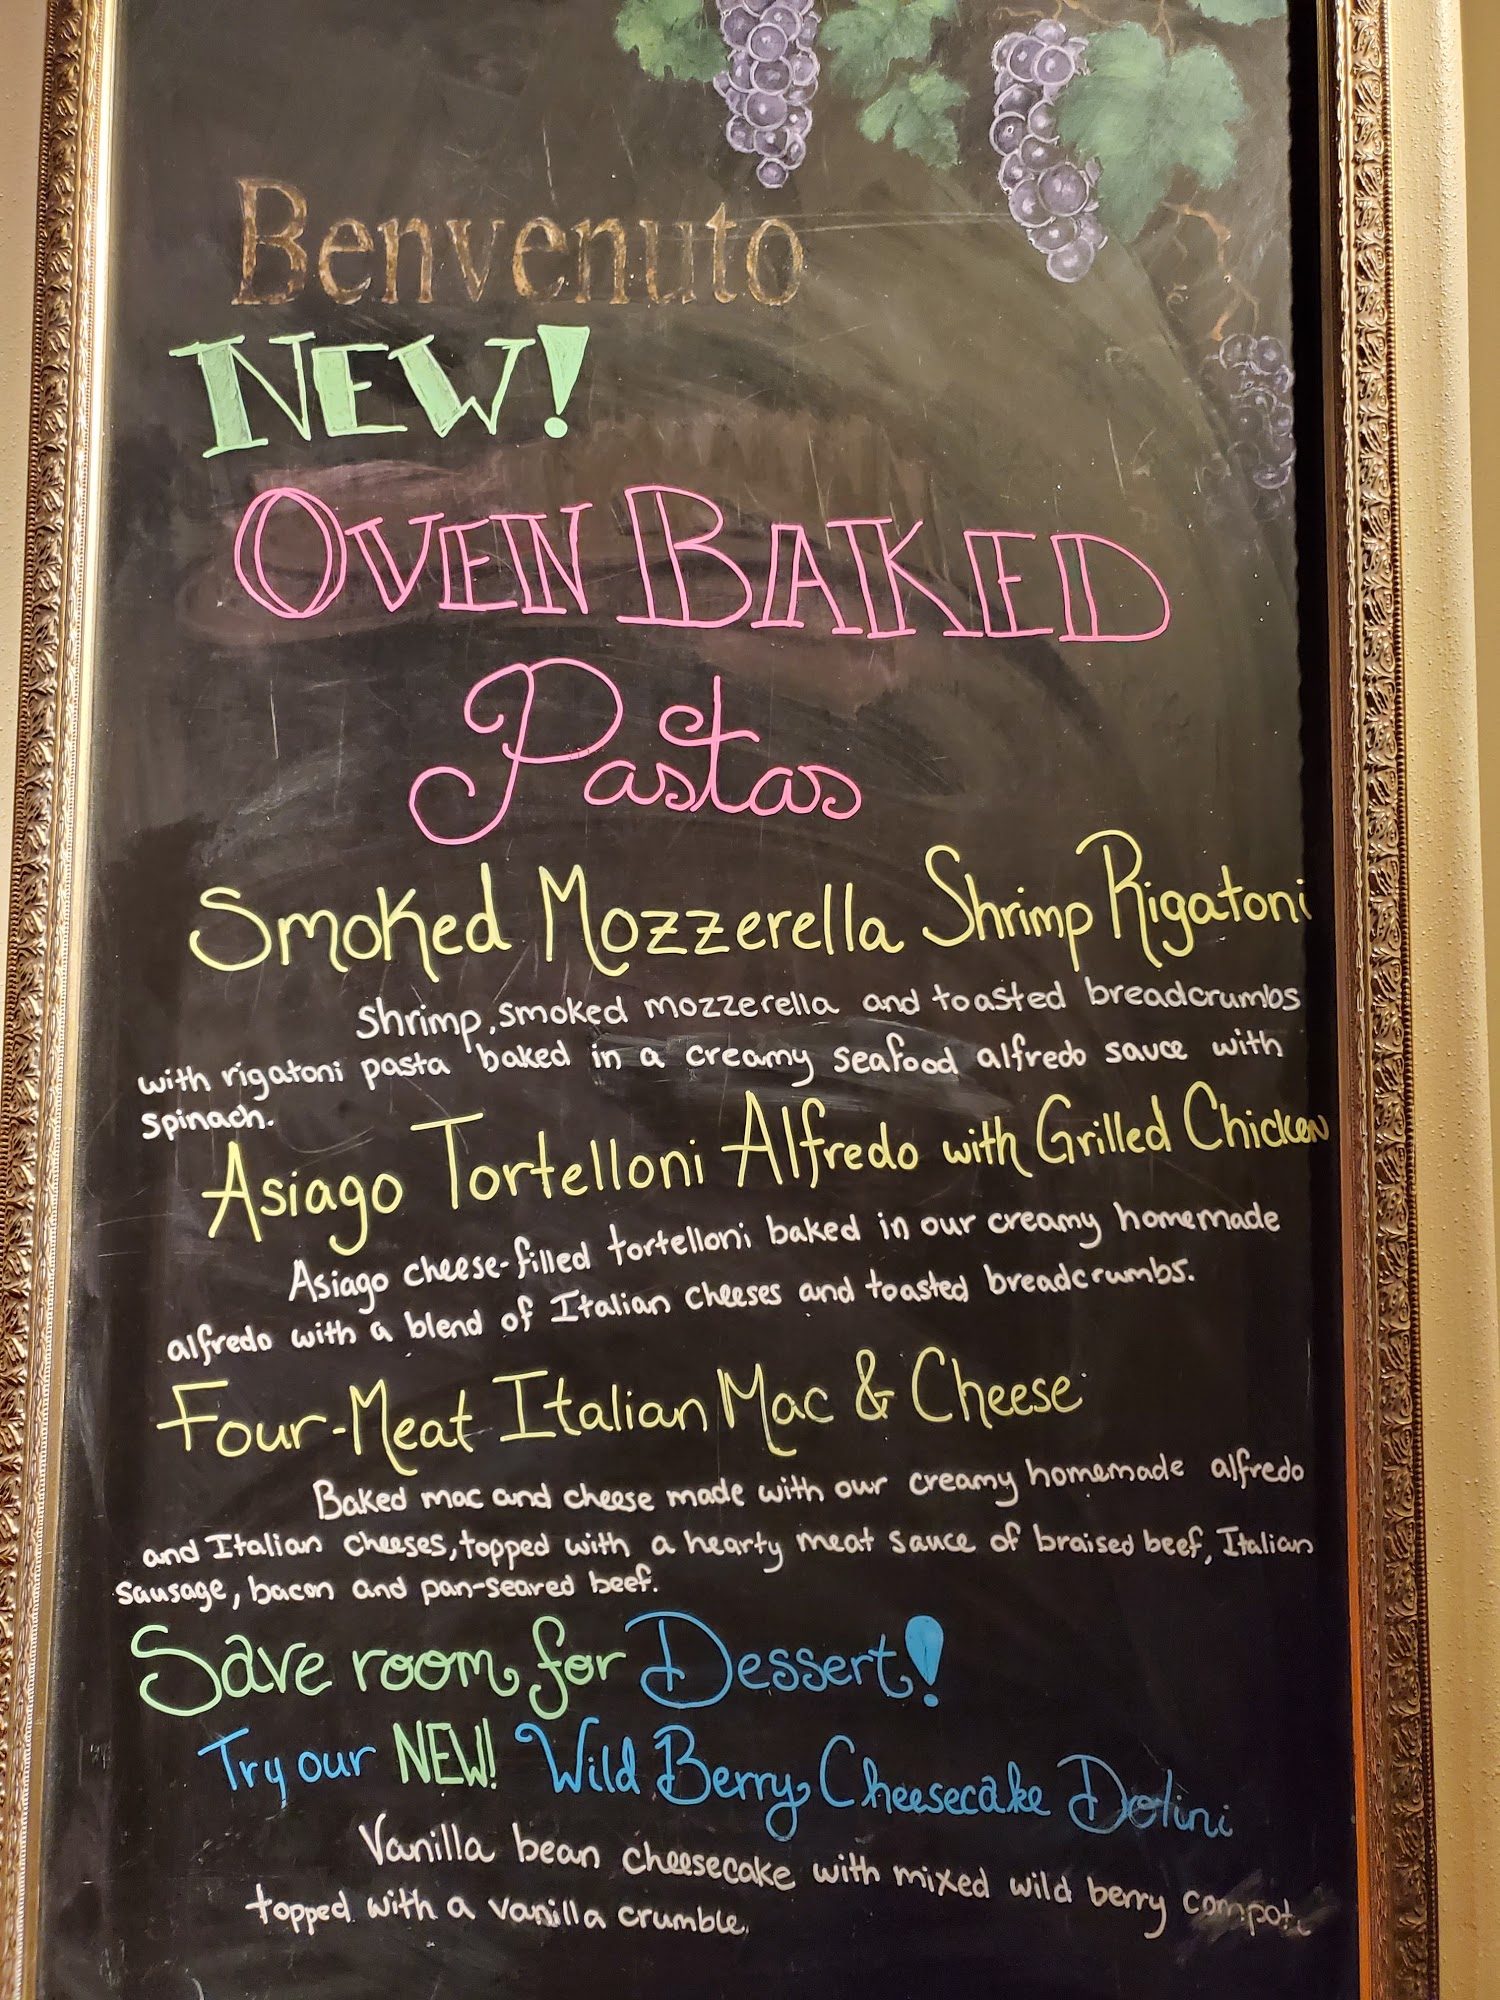 Benvenuto
NEW!
OVEN BAKED
Pastas
Smoked Mozzerella Shrimp Rigatoni
shrimp, smoked mozzerella and toasted breadcrumbs
with rigatoni pasta baked in a creamy seafood alfredo sauce with
spinach.
Asiago Tortelloni Alfredo with Grilled Chicken
Asiago cheese-filled tortelloni baked in our creamy homemade
alfredo with a blend of Italian cheeses and toasted breadcrumbs.
Four-Meat Italian Mac & Cheese
Baked mac and cheese made with our creamy homemade alfredo
and Italian cheeses, topped with a hearty meat sauce of braised beef, Italian
sausage, bacon and pan-seared beef.
Save room for Dessert!
Try our NEW! Wild Berry Cheesecake Dolini
Vanilla bean cheesecake with mixed wild berry compot
topped with a vanilla crumble